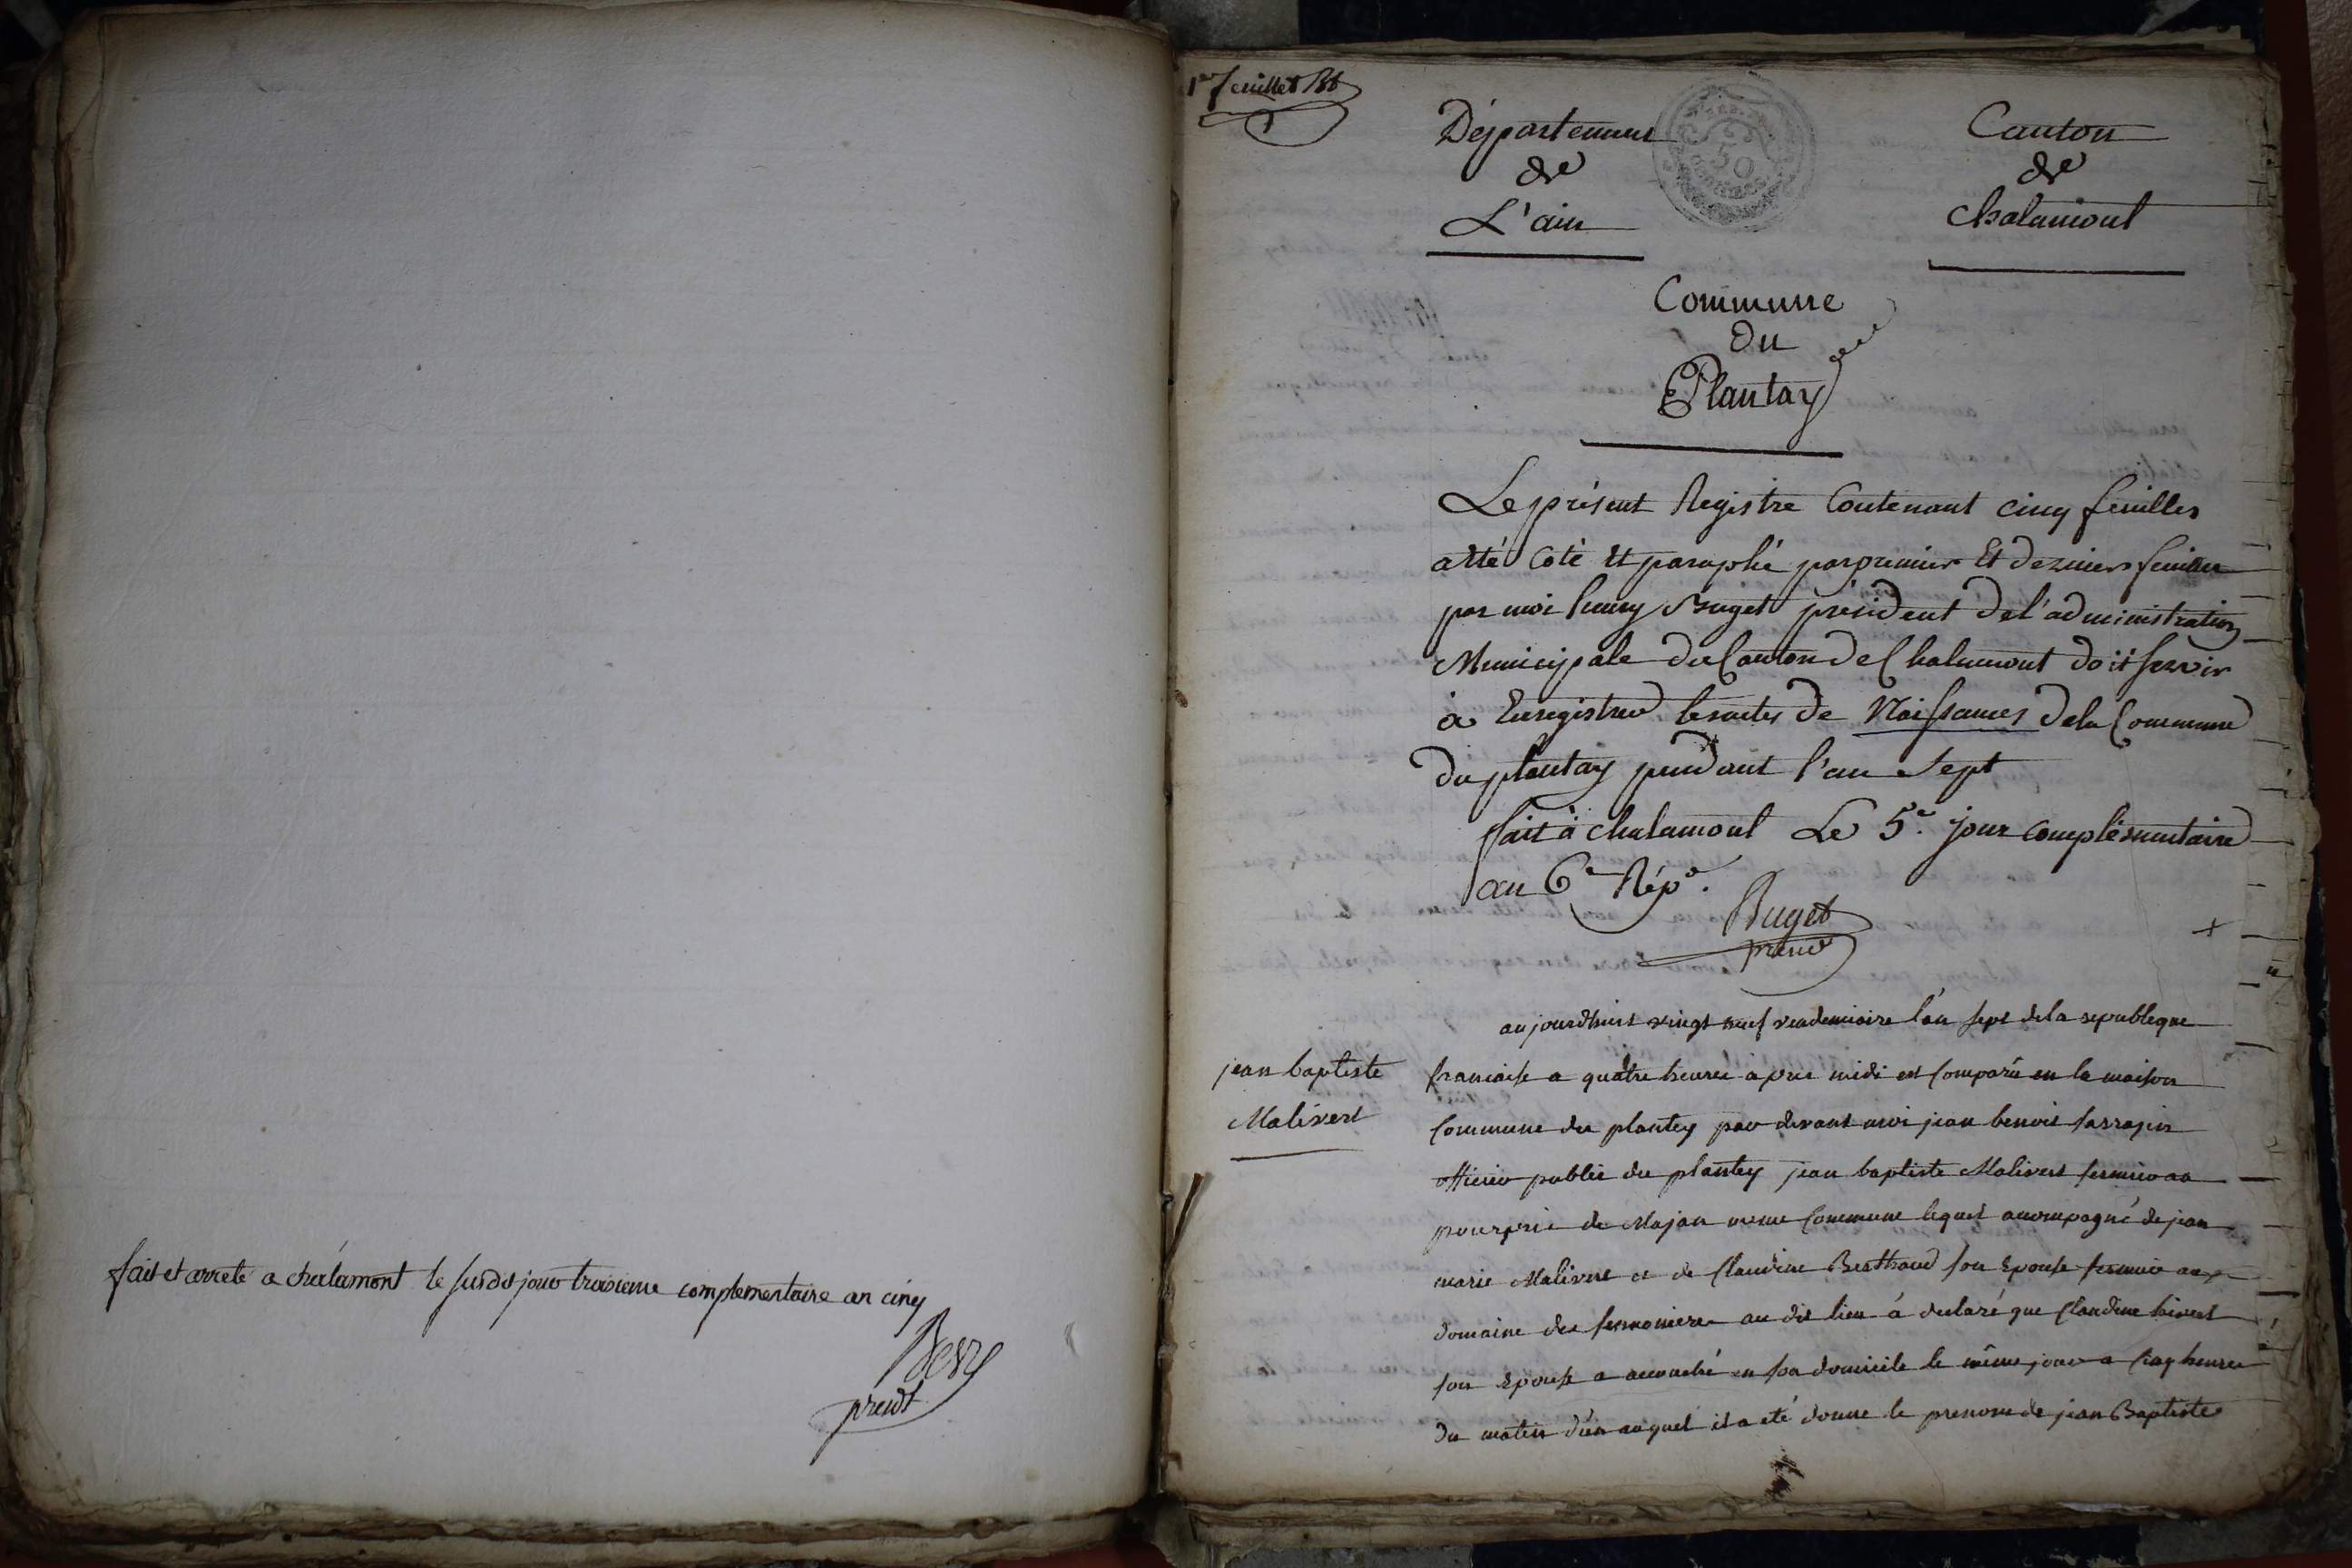 fait et arreté a chalamont le susdit jour troisieme complementaire an cinq
presdt
1er feuillet Bt
Département
de
L'ain
50
Canton
de
Chalamont
Commune
Du
Plantay
Le présent Registre Contenant cinq feuilles
a été Coté et paraphé par premier Et dernier feuillet
par moi henry Buget président de l'administration
Municipale du Canton de Chalamont doit servir
à Enregistrer les actes de Naissances de la Commune
du plantay pendant l'an Sept
fait à chalamont Le 5e. jour complémentaire
an 6e Répe.
Buget
jean baptiste
Malivert
aujourdhuit vingt neuf vendemiaire l'an sept de la republique
francaise a quatre heures apres midi est Comparû en la maison
Commune du plantey par devant moi jean benoit sarrazin
officier public du plantey jean baptiste Malivert fermier au
de Majan meme Commune lequel acompagné de jean
marie Malivert et de Claudine Berthaud son Epouse fermier au
domaine des au dit lieu à declaré que Claudine
son Epouse a accouché en son domicile le même jour a Cinq heures
du matin d'un auquel il a eté donné le prenom de jean Baptiste